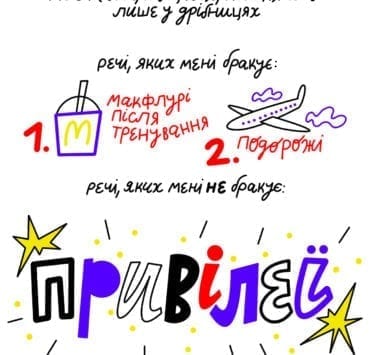 лише у дрібницях
речі, яких мені бракує:
1. МАКФЛУРІ
ПІСЛЯ
ТРЕНУВАННЯ
2. ПОДОРОЖІ
речі, яких мені НЕ бракує:
ПРИВІЛЕЇ